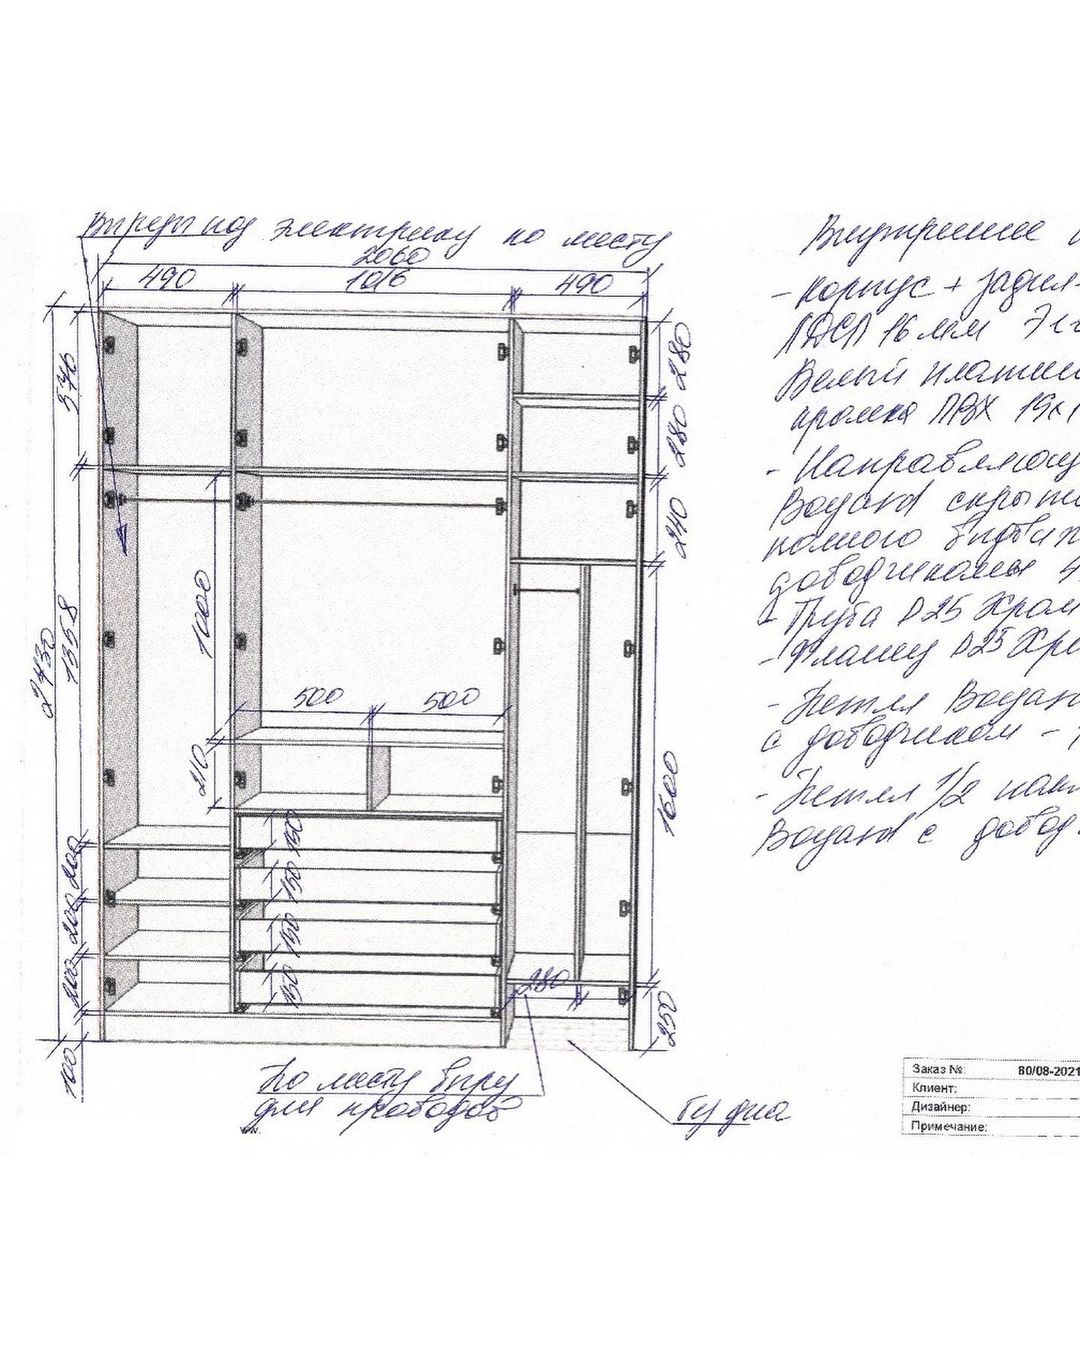 Вырезы под электрику по месту
2060
490
1016
490
576
280
280
240
1358
2430
1000
500
500
210
1600
200
200
200
150
150
150
150
280
250
100
По месту вырез
для проводов
без дна
Внутреннее
- корпус + задн-
ЛДСП 16мм
Белый платин
кромка ПВХ 19х1
- Направляющ
Boyard скрыт
полного выдвиж
доводчиками 4
- Труба D25 Хром
- Фланец D25 Хро
- Петля Boyar
с доводчиком -
- Петля 1/2 накл
Boyard с довод
Заказ №: 80/08-2021
Клиент:
Дизайнер:
Примечание: